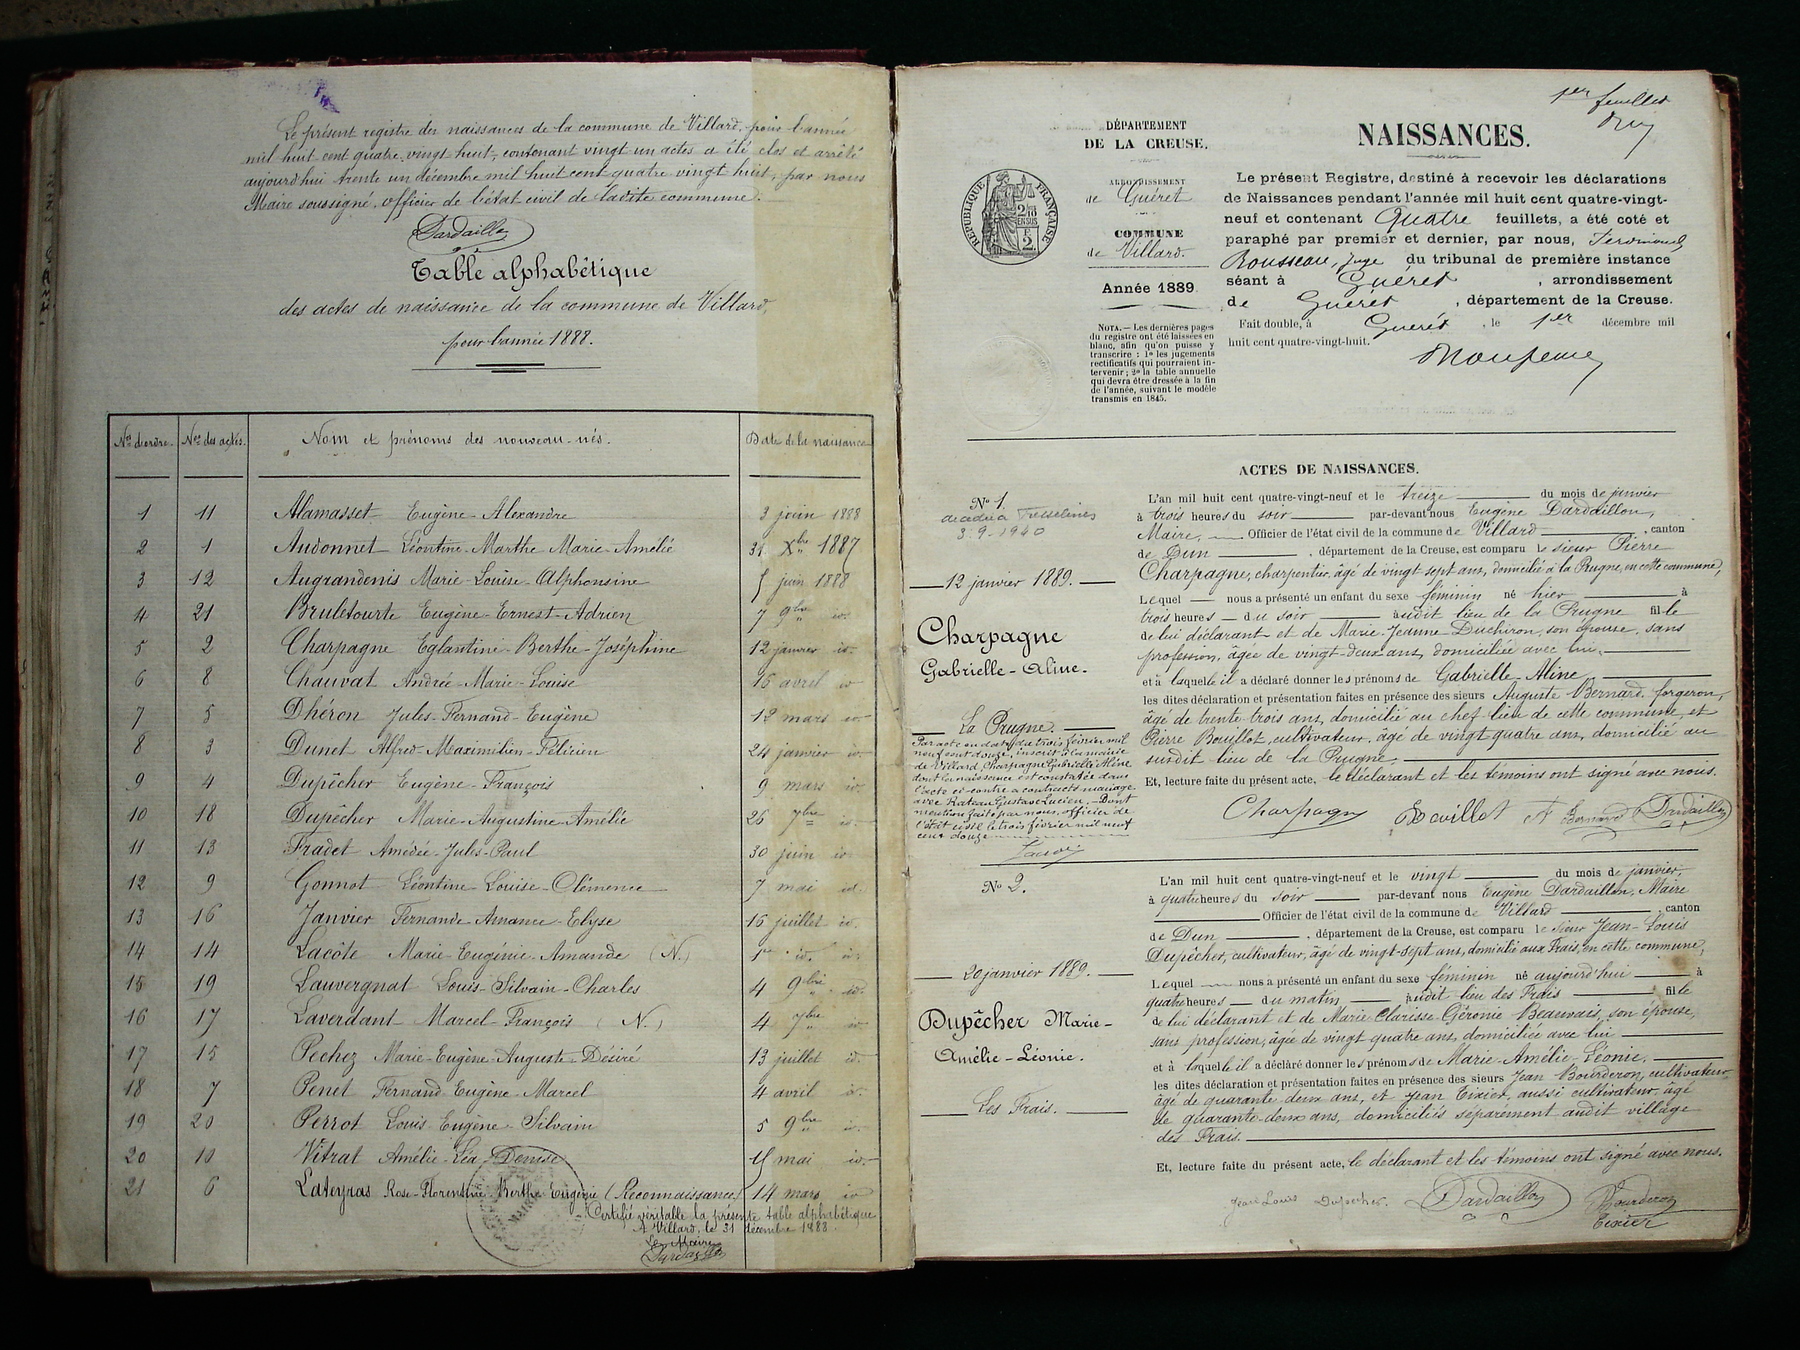 Le présent registre des naissances de la commune de Villard, pour l'année
mil huit cent quatre-vingt huit, contenant vingt un actes a été clos et arrêté
aujourd'hui trente un décembre mil huit cent quatre vingt huit, par nous
Maire soussigné, officier de l'état civil de ladite commune.
Dardaillon
Table alphabêtique
des actes de naissance de la commune de Villard,
pour l'année 1888.
Nos d'ordre. Nos des actes. Nom et prénoms des nouveau-nés. Date de la naissance
1 11 Alamasset Eugène-Alexandre 3 juin 1888
2 1 Audonnet Léontine-Marthe Marie-Amélie 31 Xbre 1887
3 12 Augrandenis Marie-Louise-Alphonsine 5 juin 1888
4 21 Bruletourte Eugène-Ernest-Adrien 7 9bre id.
5 2 Charpagne Eglantine-Berthe-Joséphine 12 janvier id.
6 8 Chauvat Andrée-Marie-Louise 16 avril id
7 5 Dhéron Jules-Fernand-Eugène 12 mars id.
8 3 Dunet Alfred-Maximilien-Félicien 24 janvier id.
9 4 Dupêcher Eugène-François 9 mars id.
10 18 Dupêcher Marie-Augustine-Amélie 26 7bre id.
11 13 Fradet Amédée-Jules-Paul 30 juin id.
12 9 Gonnot Léontine-Louise-Clémence 7 mai id.
13 16 Janvier Fernande-Amance-Elyse 16 juillet id.
14 14 Lacôte Marie-Eugénie-Amande (N.) 1er id. id.
15 19 Lauvergnat Louis-Silvain-Charles 4 9bre id.
16 17 Laverdant Marcel-François (N.) 4 7bre id
17 15 Pechez Marie-Eugène-Auguste-Désiré 13 juillet id.
18 7 Penet Fernand-Eugène-Marcel 4 avril id.
19 20 Perrot Louis-Eugène-Silvain 5 9bre id.
20 10 Vitrat Amélie-Léa-Denise 15 mai id.
21 6 Lateyras Rose-Florentine-Berthe-Eugénie (Reconnaissance) 14 mars id
Certifié véritable la présente table alphabétique
A Villard, le 31 décembre 1888.
Le Maire
Dardaillon
1er feuillet
DÉPARTEMENT
DE LA CREUSE.
ARRONDISSEMENT
de Guéret
COMMUNE
de Villard.
Année 1889.
NOTA. — Les dernières pages
du registre ont été laissées en
blanc, afin qu'on puisse y
transcrire : 1o les jugements
rectificatifs qui pourraient in-
tervenir ; 2o la table annuelle
qui devra être dressée à la fin
de l'année, suivant le modèle
transmis en 1845.
RÉPUBLIQUE FRANÇAISE
NAISSANCES.
Le présent Registre, destiné à recevoir les déclarations
de Naissances pendant l'année mil huit cent quatre-vingt-
neuf et contenant Quatre feuillets, a été coté et
paraphé par premier et dernier, par nous, Ferdinand
Rousseau, Juge du tribunal de première instance
séant à Guéret, arrondissement
de Guéret, département de la Creuse.
Fait double, à Guéret, le 1er décembre mil
huit cent quatre-vingt-huit.
ACTES DE NAISSANCES.
No 1.
3-9-1940
12 janvier 1889.
Charpagne
Gabrielle-Aline.
La Prugne.
Par acte en date du trois février mil
neuf cent douze, inscrit à la mairie
de Villard, Charpagne Gabrielle Aline
dont la naissance est constatée dans
l'acte ci-contre a contracté mariage
avec Rateau Gustave Lucien. - Dont
mention faite par nous, officier de
l'état civil le trois février mil neuf
cent douze
L'an mil huit cent quatre-vingt-neuf et le treize du mois de janvier
à trois heures du soir par-devant nous Eugène Dardaillon,
Maire, Officier de l'état civil de la commune de Villard, canton
de Dun, département de la Creuse, est comparu le sieur Pierre
Charpagne, charpentier, âgé de vingt sept ans, domicilié à la Prugne, en cette commune,
Lequel nous a présenté un enfant du sexe féminin né hier à
trois heures du soir audit lieu de la Prugne fille
de lui déclarant et de Marie-Jeanne Duchiron, son épouse, sans
profession, âgée de vingt-deux ans, domiciliée avec lui,
et à laquelle il a déclaré donner les prénoms de Gabrielle-Aline,
les dites déclaration et présentation faites en présence des sieurs Auguste Bernard, forgeron,
âgé de trente trois ans, domicilié au chef-lieu de cette commune, et
Pierre Bouillot, cultivateur, âgé de vingt quatre ans, domicilié au
susdit lieu de la Prugne.
Et, lecture faite du présent acte, le déclarant et les témoins ont signé avec nous.
Charpagne Bouillot A Bernard Dardaillon
No 2.
20 janvier 1889.
Dupêcher Marie-
Amélie-Léonie.
Les Frais.
L'an mil huit cent quatre-vingt-neuf et le vingt du mois de janvier,
à quatre heures du soir par-devant nous Eugène Dardaillon, Maire
Officier de l'état civil de la commune de Villard, canton
de Dun, département de la Creuse, est comparu le sieur Jean-Louis
Dupêcher, cultivateur, âgé de vingt-sept ans, domicilié aux Frais, en cette commune,
Lequel nous a présenté un enfant du sexe féminin né aujourd'hui à
quatre heures du matin, audit lieu des Frais fille
de lui déclarant et de Marie-Clarisse-Géronie Beauvais, son épouse,
sans profession, âgée de vingt quatre ans, domiciliée avec lui
et à laquelle il a déclaré donner les prénoms de Marie-Amélie-Léonie,
les dites déclaration et présentation faites en présence des sieurs Jean Bourderon, cultivateur,
âgé de quarante deux ans, et Jean Tixier, aussi cultivateur, âgé
de quarante-deux ans, domiciliés séparément audit village
des Frais.
Et, lecture faite du présent acte, le déclarant et les témoins ont signé avec nous.
Jean Louis Dupecher. Dardaillon Bourderon
Tixier